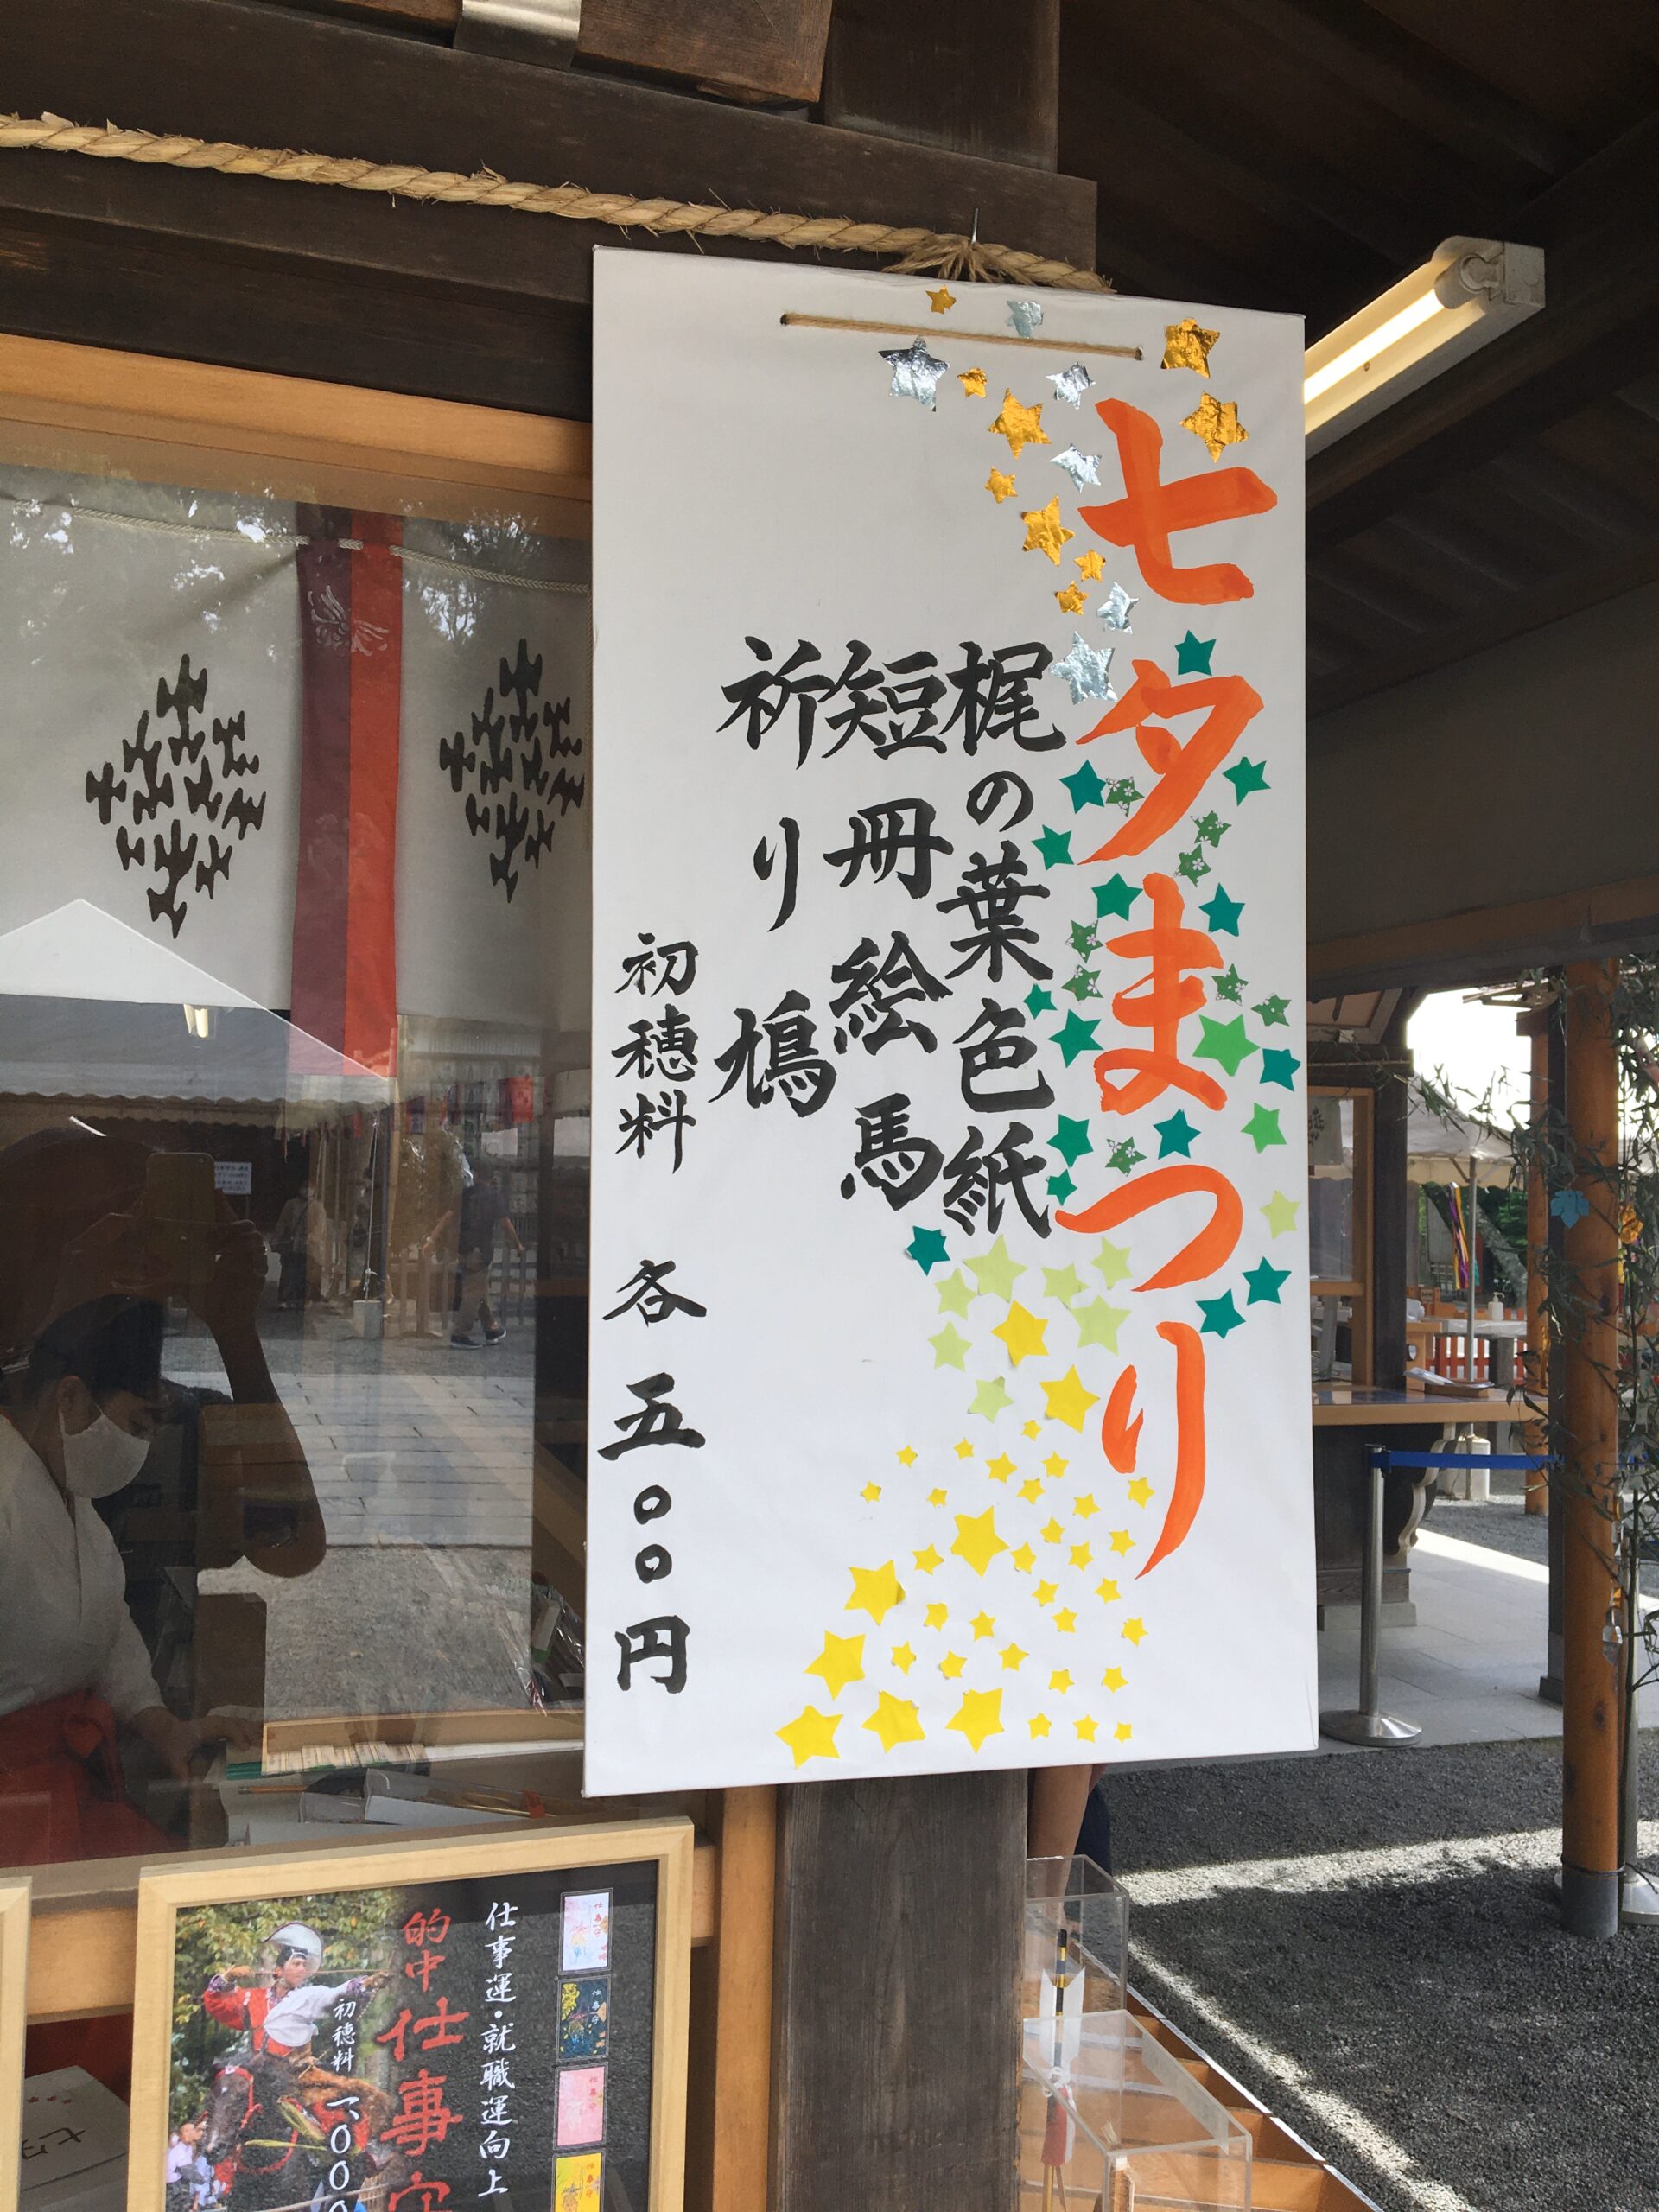 七夕まつり
梶の葉色紙
短冊絵馬
祈り鳩
初穂料 各 五〇〇円
仕事運・就職運向上
的中仕事守
初穂料 一、〇〇〇